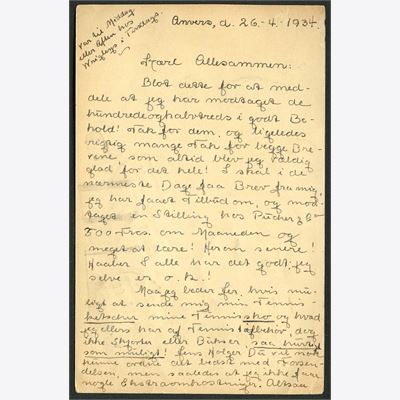 Var til Middag
eller Aften hos
i Tirsdags.
Anvers, d. 26.-4.-1934.
Kære Allesammen:
Blot dette for at med-
dele at jeg har modtaget de
hundredeoghalvtreds i godt Be-
hold! Tak for dem, og ligeledes
rigtig mange Tak for begge Bre-
vene, som altid blev jeg vældig
glad for det hele! I skal i de
nærmeste Dage faa Brev fra mig,
jeg har faaet Tilbud om, og mod-
taget en Stilling hos
500 Frcs. om Maaneden og
meget at lære! Herom senere!
Haaber I alle har det godt, jeg
selv er o.k.!
Maa jeg beder for, hvis mu-
ligt at sende mig min Tennis-
ketscher mine Tennissko og hvad
jeg ellers har af Tennistilbehør, dog
ikke Skjorter eller Buxser, saa hurtigt
som muligt! Jens Holger Du vil nok
kunne ordne det bedst med Forsen-
delsen, men saaledes at jeg ikke faar
nogle Ekstraomkostninger. Altsaa